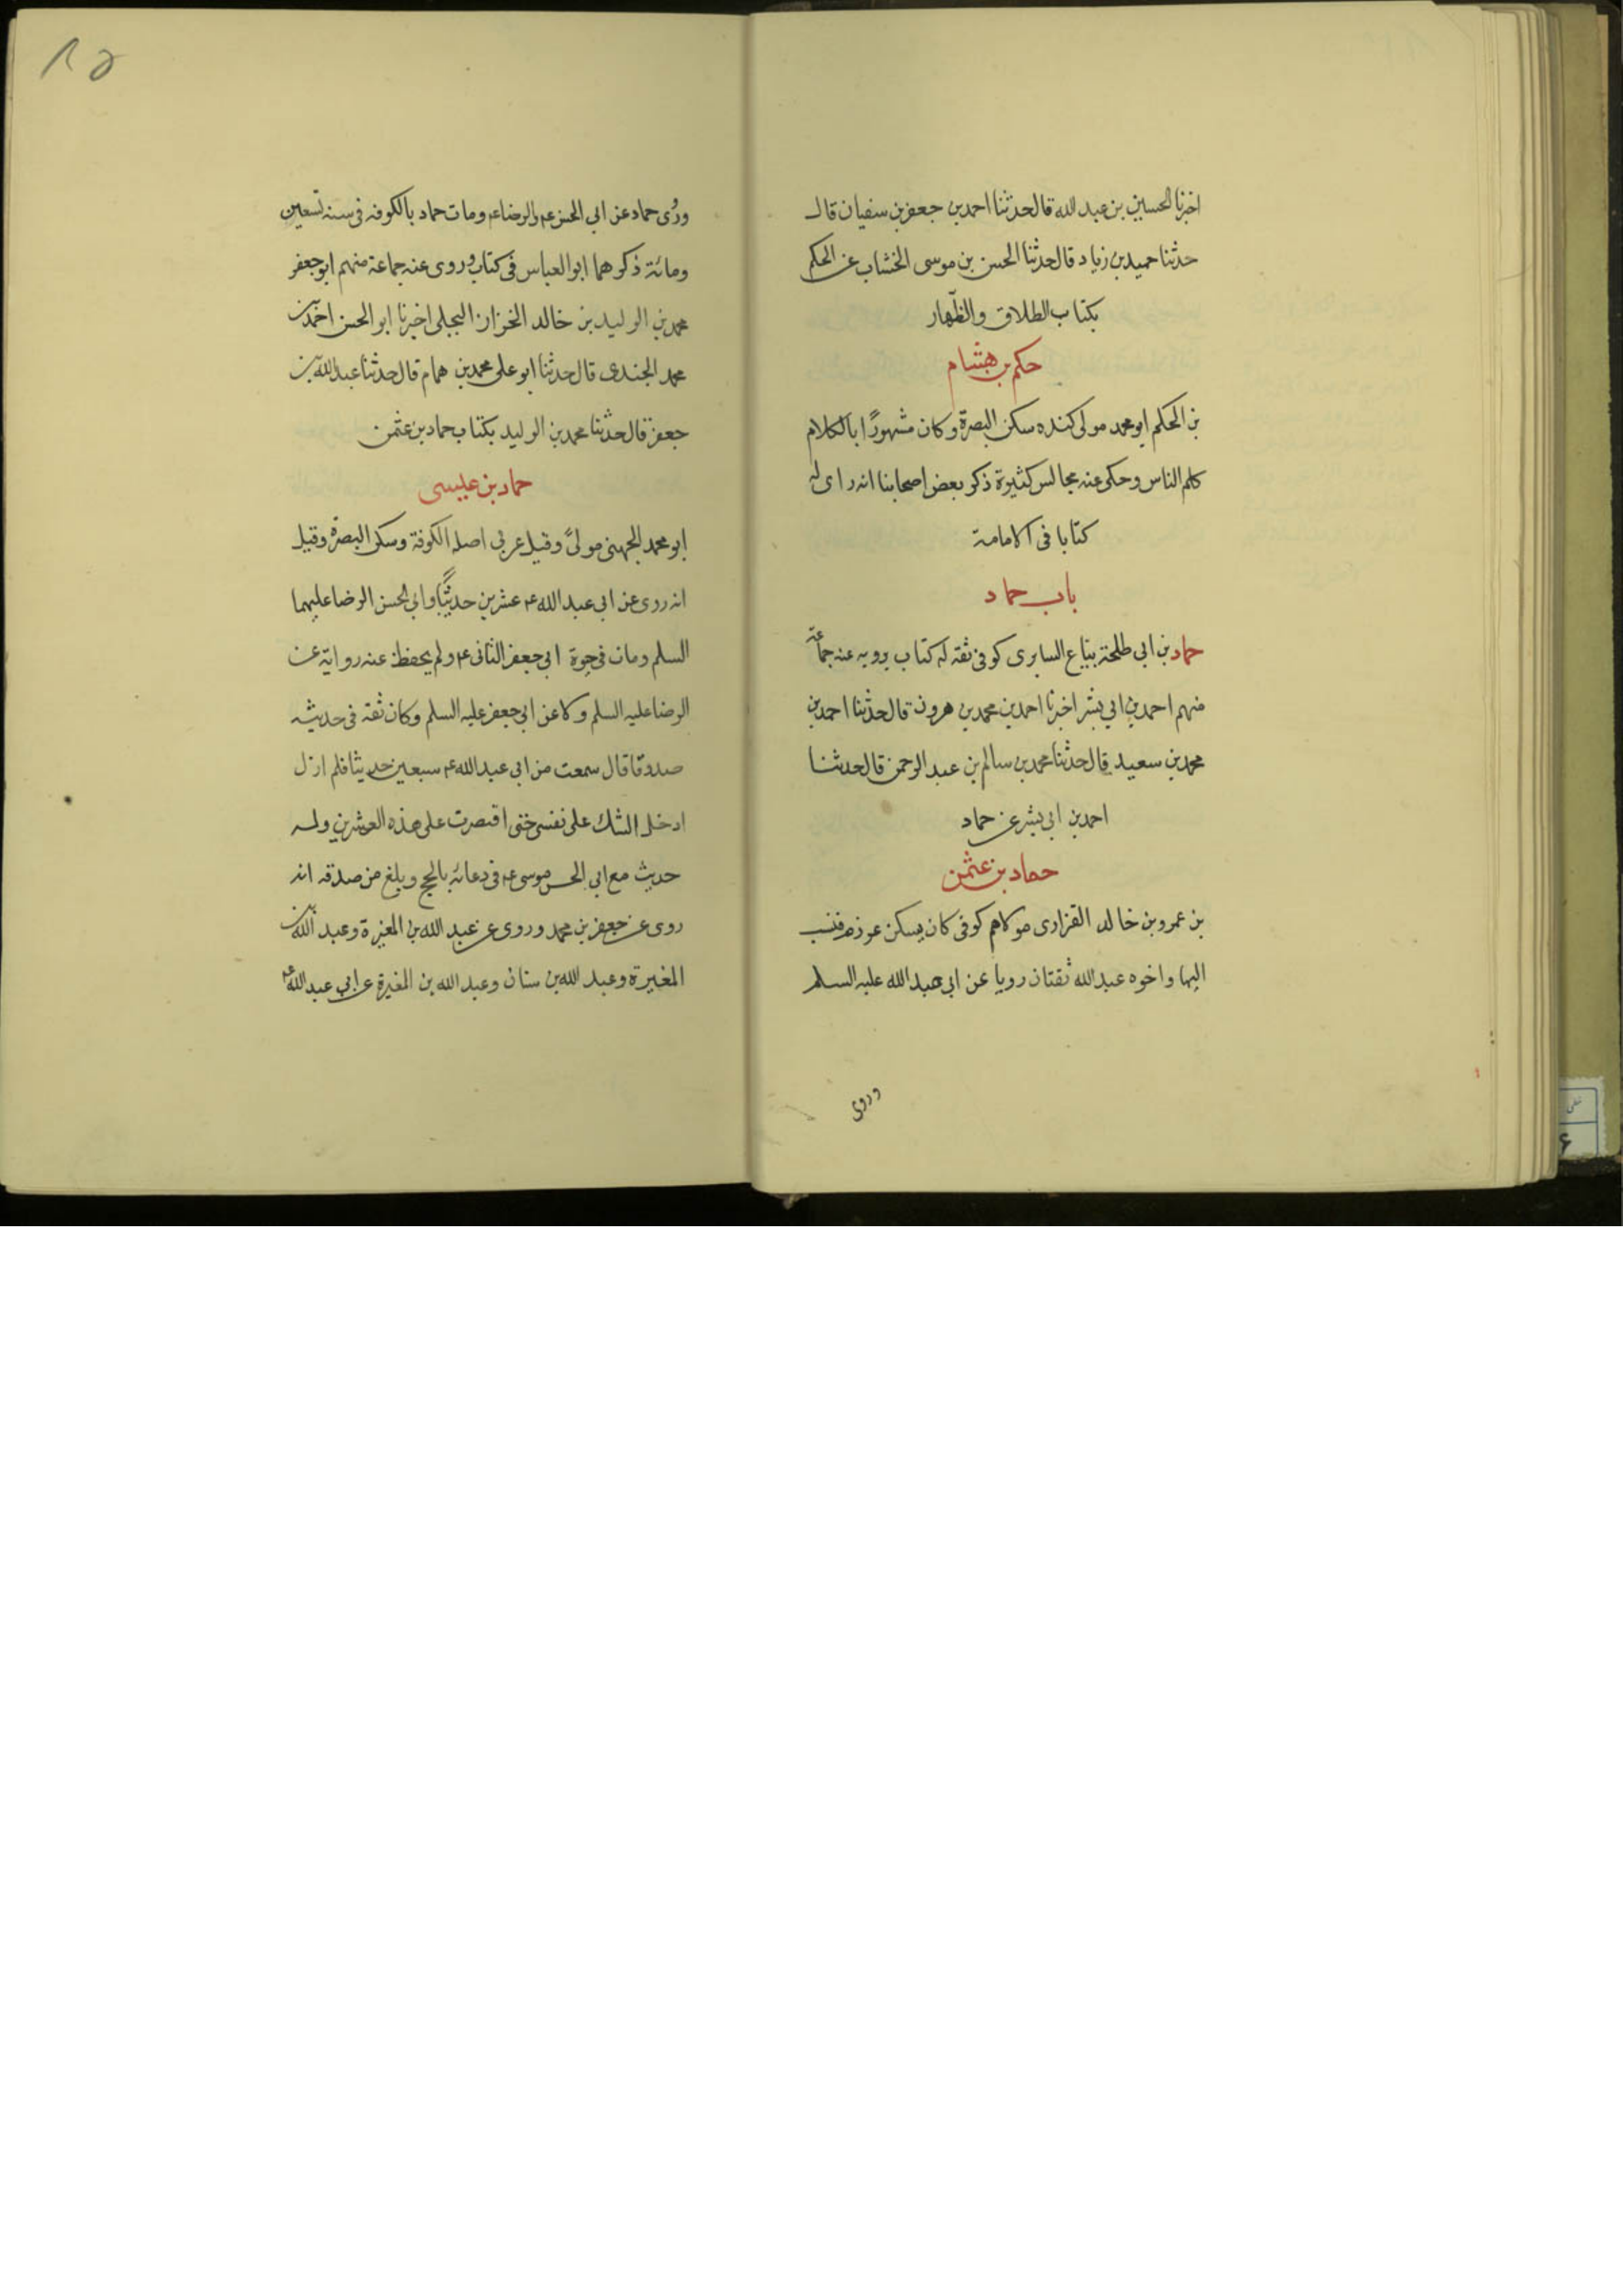 اخبرنا الحسين بن عبد الله قال حدثنا احمد بن جعفر بن سفيان قال
حدثنا حميد بن زياد قال حدثنا الحسن بن موسى الخشاب عن الحكم
بكتاب الطلاق والظهار
حكم بن هشام
بن الحكم ابو محمد مولى كنده سكن البصرة وكان مشهورًا بالكلام
كلم الناس وحكى عنه مجالس كثيرة ذكر بعض اصحابنا انه راى له
كتابا فى الامامة
باب حماد
حماد بن ابى طلحة بياع السابرى كوفى ثقه له كتاب يرويه عنه جماعة
منهم احمد بن ابي بشر اخبرنا احمد بن محمد بن هرون قال حدثنا احمد بن
محمد بن سعيد قال حدثنا محمد بن سالم بن عبد الرحمن قال حدثنا
احمد بن ابي بشر عن حماد
حماد بن عثمن
بن عمرو بن خالد الفزارى مولاهم كوفى كان يسكن عرزم فنسب
اليها واخوه عبد الله ثقتان رويا عن ابى عبد الله عليه السلم
وروى
وروى حماد عن ابي الحسن ع والرضا ع ومات حماد بالكوفه فى سنه تسعين
ومائة ذكرهما ابو العباس فى كتابه وروى عنه جماعة منهم ابو جعفر
محمد بن الوليد بن خالد الخزاز البجلى اخبرنا ابو الحسن احمد بن
محمد الجندى قال حدثنا ابو على محمد بن همام قال حدثنا عبد الله بن
جعفر قال حدثنا محمد بن الوليد بكتاب حماد بن عثمن
حماد بن عيسى
ابو محمد الجهنى مولىً وقيل عربى اصله الكوفة وسكن البصرة وقيل
انه روى عن ابى عبد الله ع عشرين حديثًا وابى الحسن الرضا عليهما
السلم ومات فى حيوة ابى جعفر الثانى ع ولم يحفظ عنه رواية عن
الرضا عليه السلم ولا عن ابى جعفر عليه السلم وكان ثقة فى حديثه
صدوقا قال سمعت من ابى عبد الله ع سبعين حديثا فلم ازل
ادخل الشك على نفسى حتى اقتصرت على هذه العشرين وله
حديث مع ابى الحسن موسى ع فى دعائه بالحج وبلغ من صدقه انه
روى عن جعفر بن محمد وروى عن عبد الله بن المغيرة وعبد الله بن
المغيرة وعبد الله بن سنان وعبد الله بن المغيرة عن ابى عبد الله ع